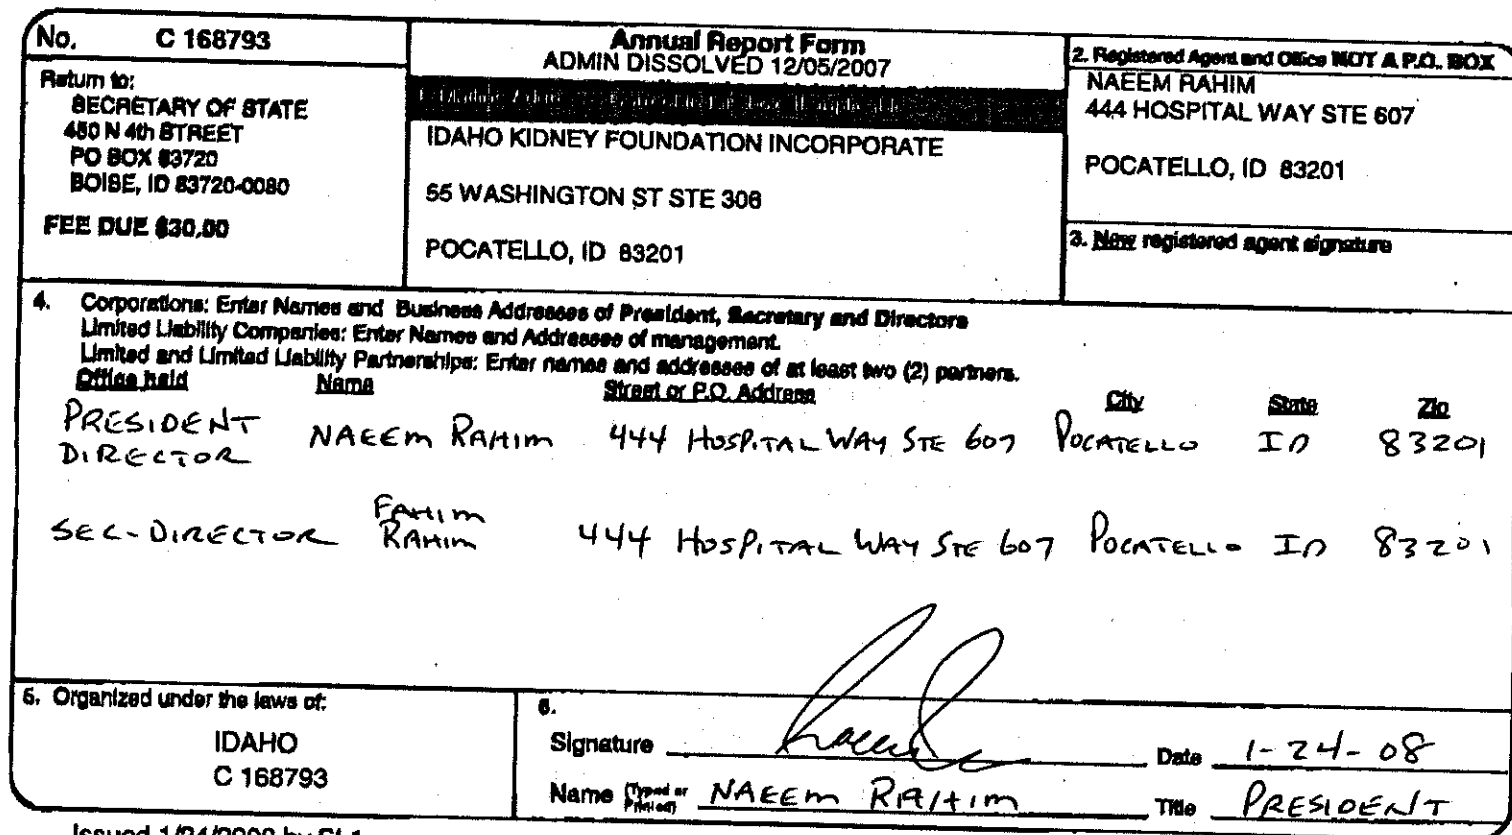 No. C 168793
Return to:
SECRETARY OF STATE
450 N 4th STREET
PO BOX 83720
BOISE, ID 83720-0080
FEE DUE $30.00
Annual Report Form
ADMIN DISSOLVED 12/05/2007
IDAHO KIDNEY FOUNDATION INCORPORATE
55 WASHINGTON ST STE 306
POCATELLO, ID 83201
2. Registered Agent and Office NOT A P.O. BOX
NAEEM RAHIM
444 HOSPITAL WAY STE 607
POCATELLO, ID 83201
3. New registered agent signature
4. Corporations: Enter Names and Business Addresses of President, Secretary and Directors
Limited Liability Companies: Enter Names and Addresses of management.
Limited and Limited Liability Partnerships: Enter names and addresses of at least two (2) partners.
Office held Name Street or P.O. Address City State Zip
PRESIDENT DIRECTOR NAEEM RAHIM 444 HOSPITAL WAY STE 607 POCATELLO ID 83201
SEC-DIRECTOR FAHIM RAHIM 444 HOSPITAL WAY STE 607 POCATELLO ID 83201
5. Organized under the laws of:
IDAHO
C 168793
6.
Signature Date 1-24-08
Name (Typed or Printed) NAEEM RAHIM Title PRESIDENT